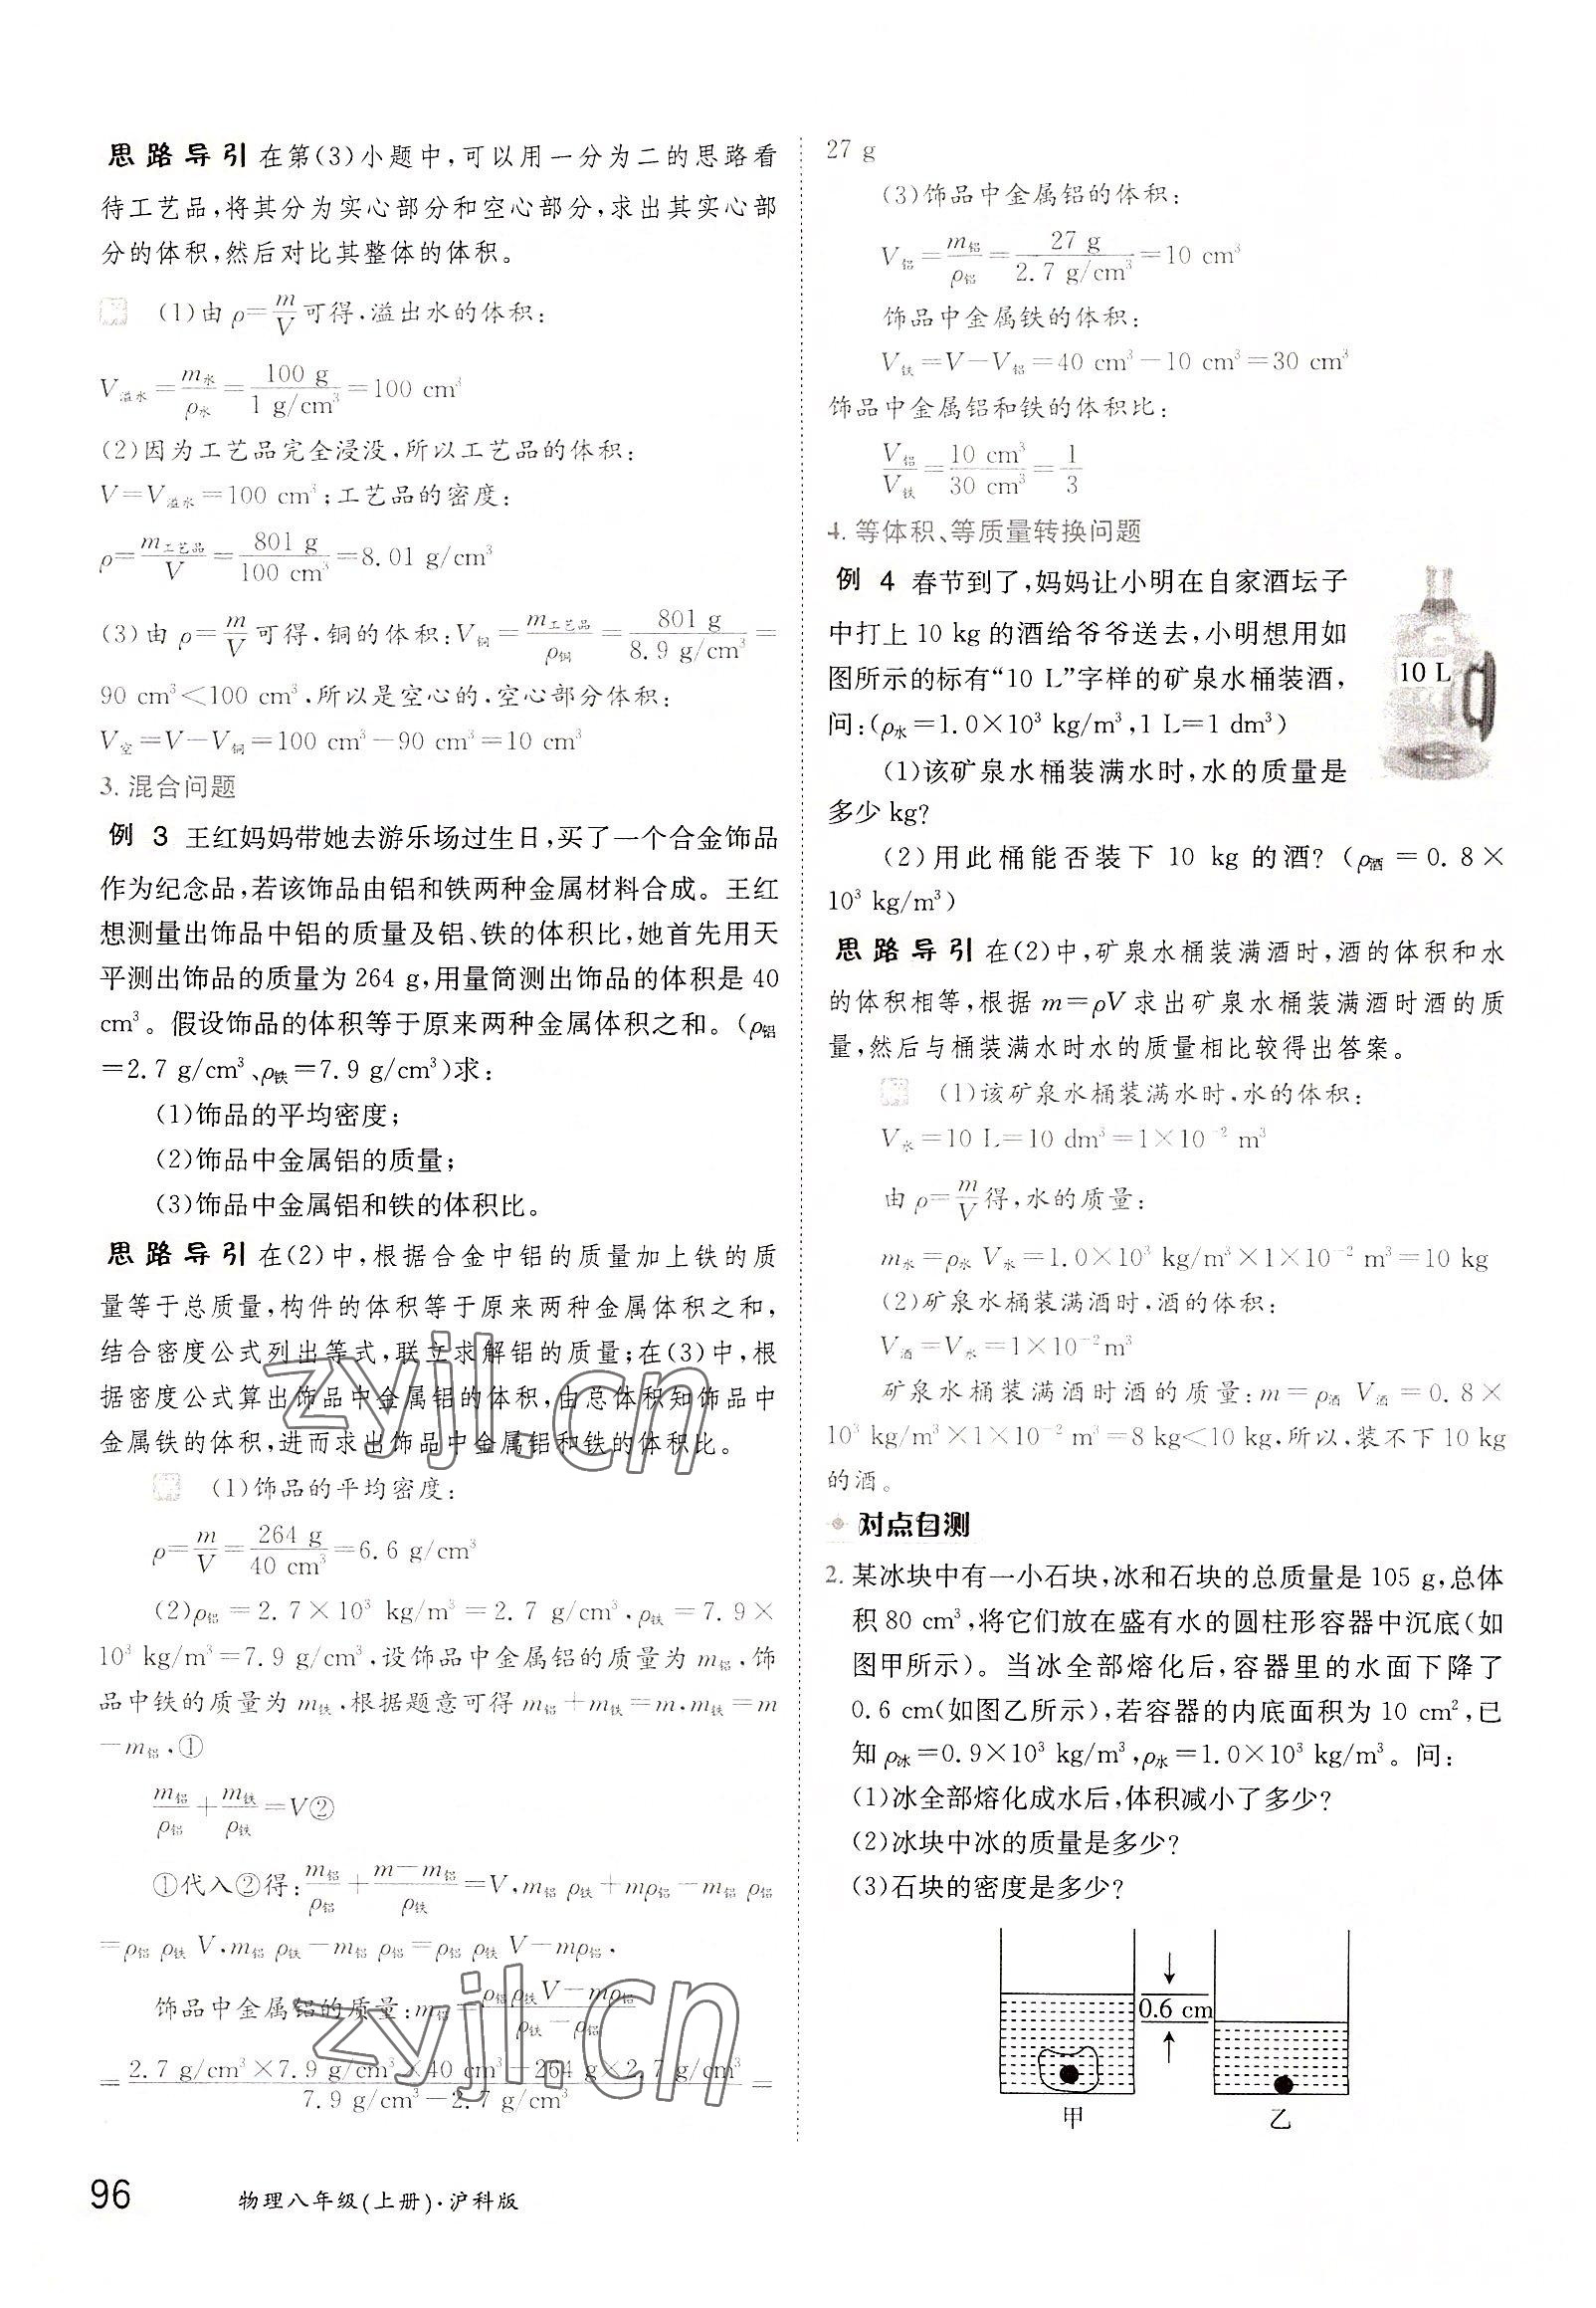 思路导引 在第(3)小题中,可以用一分为二的思路看
待工艺品,将其分为实心部分和空心部分,求出其实心部
分的体积,然后对比其整体的体积。
(1)由 ρ=m/V 可得,溢出水的体积:
V溢水=m水/ρ水=100 g/1 g/cm³=100 cm³
(2)因为工艺品完全浸没,所以工艺品的体积:
V=V溢水=100 cm³;工艺品的密度:
ρ=m工艺品/V=801 g/100 cm³=8.01 g/cm³
(3)由 ρ=m/V 可得,铜的体积:V铜=m工艺品/ρ铜=801 g/8.9 g/cm³=
90 cm³<100 cm³,所以是空心的,空心部分体积:
V空=V-V铜=100 cm³-90 cm³=10 cm³
3. 混合问题
例 3 王红妈妈带她去游乐场过生日,买了一个合金饰品
作为纪念品,若该饰品由铝和铁两种金属材料合成。王红
想测量出饰品中铝的质量及铝、铁的体积比,她首先用天
平测出饰品的质量为 264 g,用量筒测出饰品的体积是 40
cm³。假设饰品的体积等于原来两种金属体积之和。(ρ铝
=2.7 g/cm³、ρ铁=7.9 g/cm³)求:
(1)饰品的平均密度;
(2)饰品中金属铝的质量;
(3)饰品中金属铝和铁的体积比。
思路导引 在(2)中,根据合金中铝的质量加上铁的质
量等于总质量,构件的体积等于原来两种金属体积之和,
结合密度公式列出等式,联立求解铝的质量;在(3)中,根
据密度公式算出饰品中金属铝的体积,由总体积知饰品中
金属铁的体积,进而求出饰品中金属铝和铁的体积比。
(1)饰品的平均密度:
ρ=m/V=264 g/40 cm³=6.6 g/cm³
(2)ρ铝=2.7×10³ kg/m³=2.7 g/cm³,ρ铁=7.9×
10³ kg/m³=7.9 g/cm³,设饰品中金属铝的质量为 m铝,饰
品中铁的质量为 m铁,根据题意可得 m铝+m铁=m,m铁=m
-m铝,①
m铝/ρ铝+m铁/ρ铁=V②
①代入②得:m铝/ρ铝+m-m铝/ρ铁=V,m铝 ρ铁+mρ铝-m铝 ρ铝
=ρ铝 ρ铁 V,m铝 ρ铁-m铝 ρ铝=ρ铝 ρ铁 V-mρ铝,
饰品中金属铝的质量:m铝=ρ铝ρ铁V-mρ铝/ρ铁-ρ铝
=2.7 g/cm³×7.9 g/cm³×40 cm³-264 g×2.7 g/cm³/7.9 g/cm³-2.7 g/cm³=
27 g
(3)饰品中金属铝的体积:
V铝=m铝/ρ铝=27 g/2.7 g/cm³=10 cm³
饰品中金属铁的体积:
V铁=V-V铝=40 cm³-10 cm³=30 cm³
饰品中金属铝和铁的体积比:
V铝/V铁=10 cm³/30 cm³=1/3
4. 等体积、等质量转换问题
例 4 春节到了,妈妈让小明在自家酒坛子
中打上 10 kg 的酒给爷爷送去,小明想用如
图所示的标有“10 L”字样的矿泉水桶装酒,
问:(ρ水=1.0×10³ kg/m³,1 L=1 dm³)
(1)该矿泉水桶装满水时,水的质量是
多少 kg?
(2)用此桶能否装下 10 kg 的酒? (ρ酒=0.8×
10³ kg/m³)
10 L
思路导引 在(2)中,矿泉水桶装满酒时,酒的体积和水
的体积相等,根据 m=ρV 求出矿泉水桶装满酒时酒的质
量,然后与桶装满水时水的质量相比较得出答案。
(1)该矿泉水桶装满水时,水的体积:
V水=10 L=10 dm³=1×10⁻² m³
由 ρ=m/V得,水的质量:
m水=ρ水 V水=1.0×10³ kg/m³×1×10⁻² m³=10 kg
(2)矿泉水桶装满酒时,酒的体积:
V酒=V水=1×10⁻²m³
矿泉水桶装满酒时酒的质量:m=ρ酒 V酒=0.8×
10³ kg/m³×1×10⁻² m³=8 kg<10 kg,所以,装不下 10 kg
的酒。
对点自测
2. 某冰块中有一小石块,冰和石块的总质量是 105 g,总体
积 80 cm³,将它们放在盛有水的圆柱形容器中沉底(如
图甲所示)。当冰全部熔化后,容器里的水面下降了
0.6 cm(如图乙所示),若容器的内底面积为 10 cm²,已
知 ρ冰=0.9×10³ kg/m³,ρ水=1.0×10³ kg/m³。问:
(1)冰全部熔化成水后,体积减小了多少?
(2)冰块中冰的质量是多少?
(3)石块的密度是多少?
0.6 cm
甲 乙
zyjl.cn
zyjl.cn
96 物理八年级(上册)·沪科版